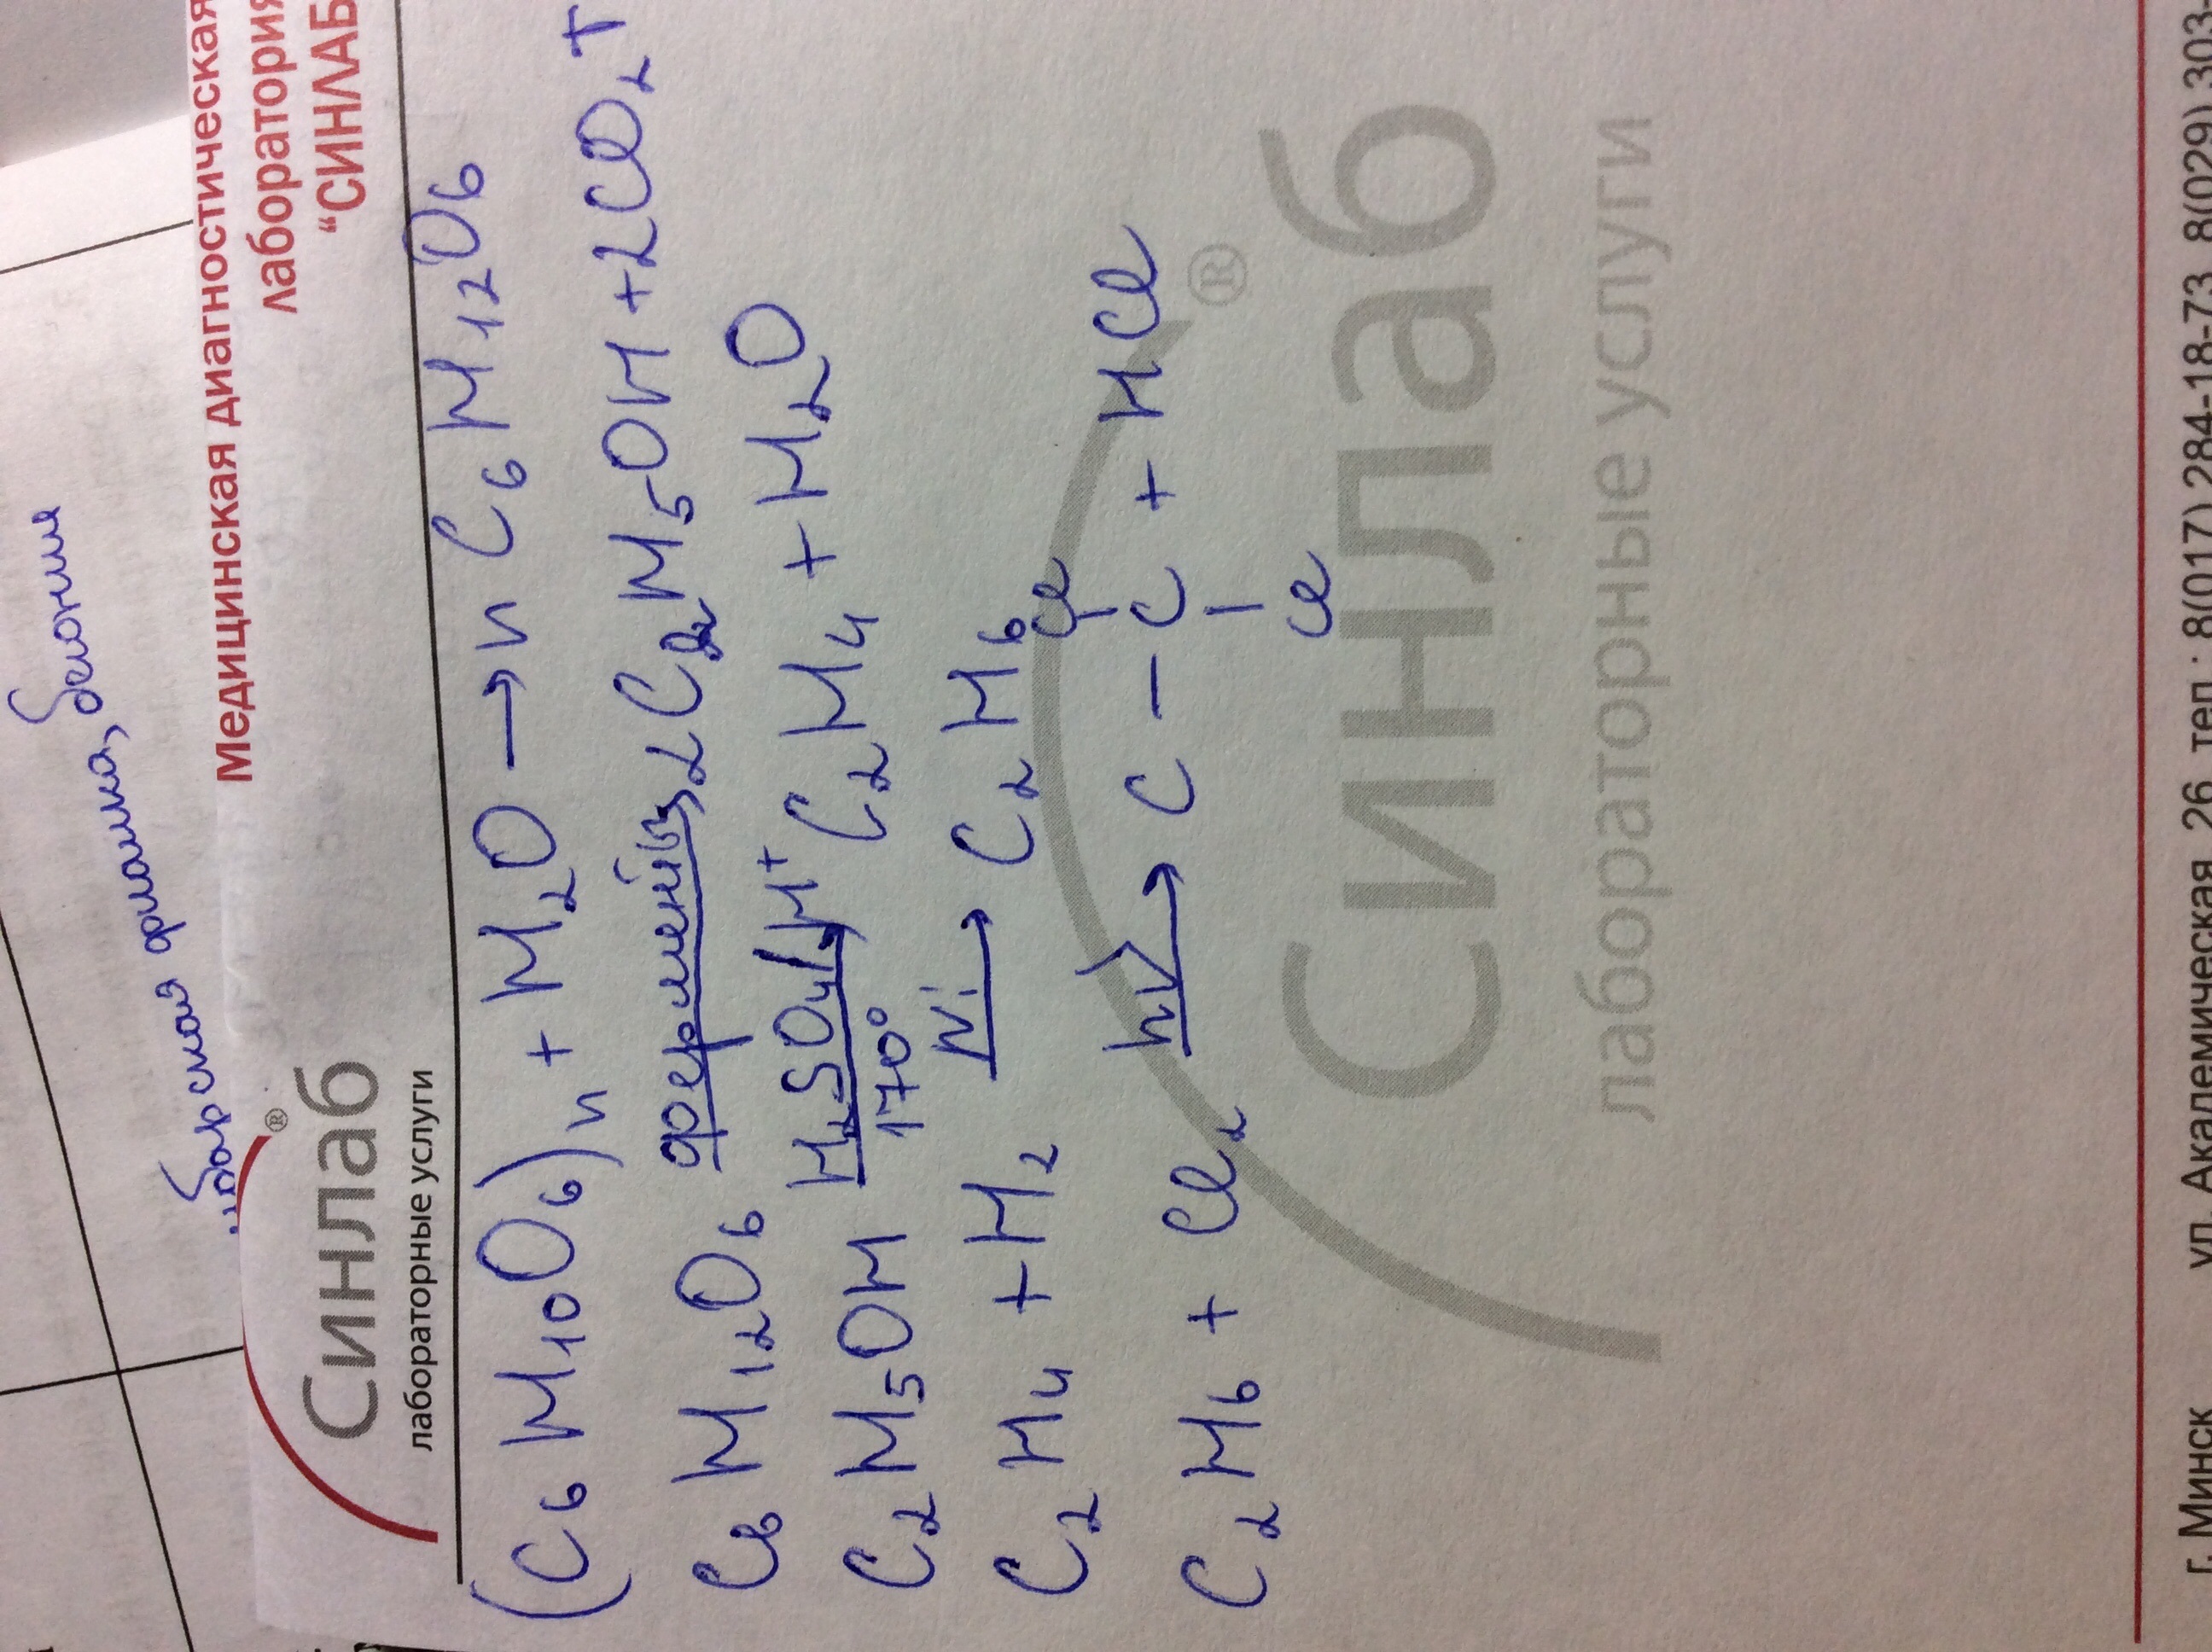 белоние
Медицинская диагностическая
лаборатория
"СИНЛАБ
Синлаб®
лабораторные услуги
(C6H10O6)n + H2O → n C6H12O6
C6H12O6 ферменты 2C2H5OH + 2CO2↑
C2H5OH H2SO4/H+ 170° C2H4 + H2O
C2H4 + H2 Ni → C2H6
C2H6 + Cl2 hν → C - C + HCl
Cl
Cl
Синлаб®
лабораторные услуги
г. Минск ул. Академическая 26 тел.: 8(017) 284-18-73 8(029) 303-